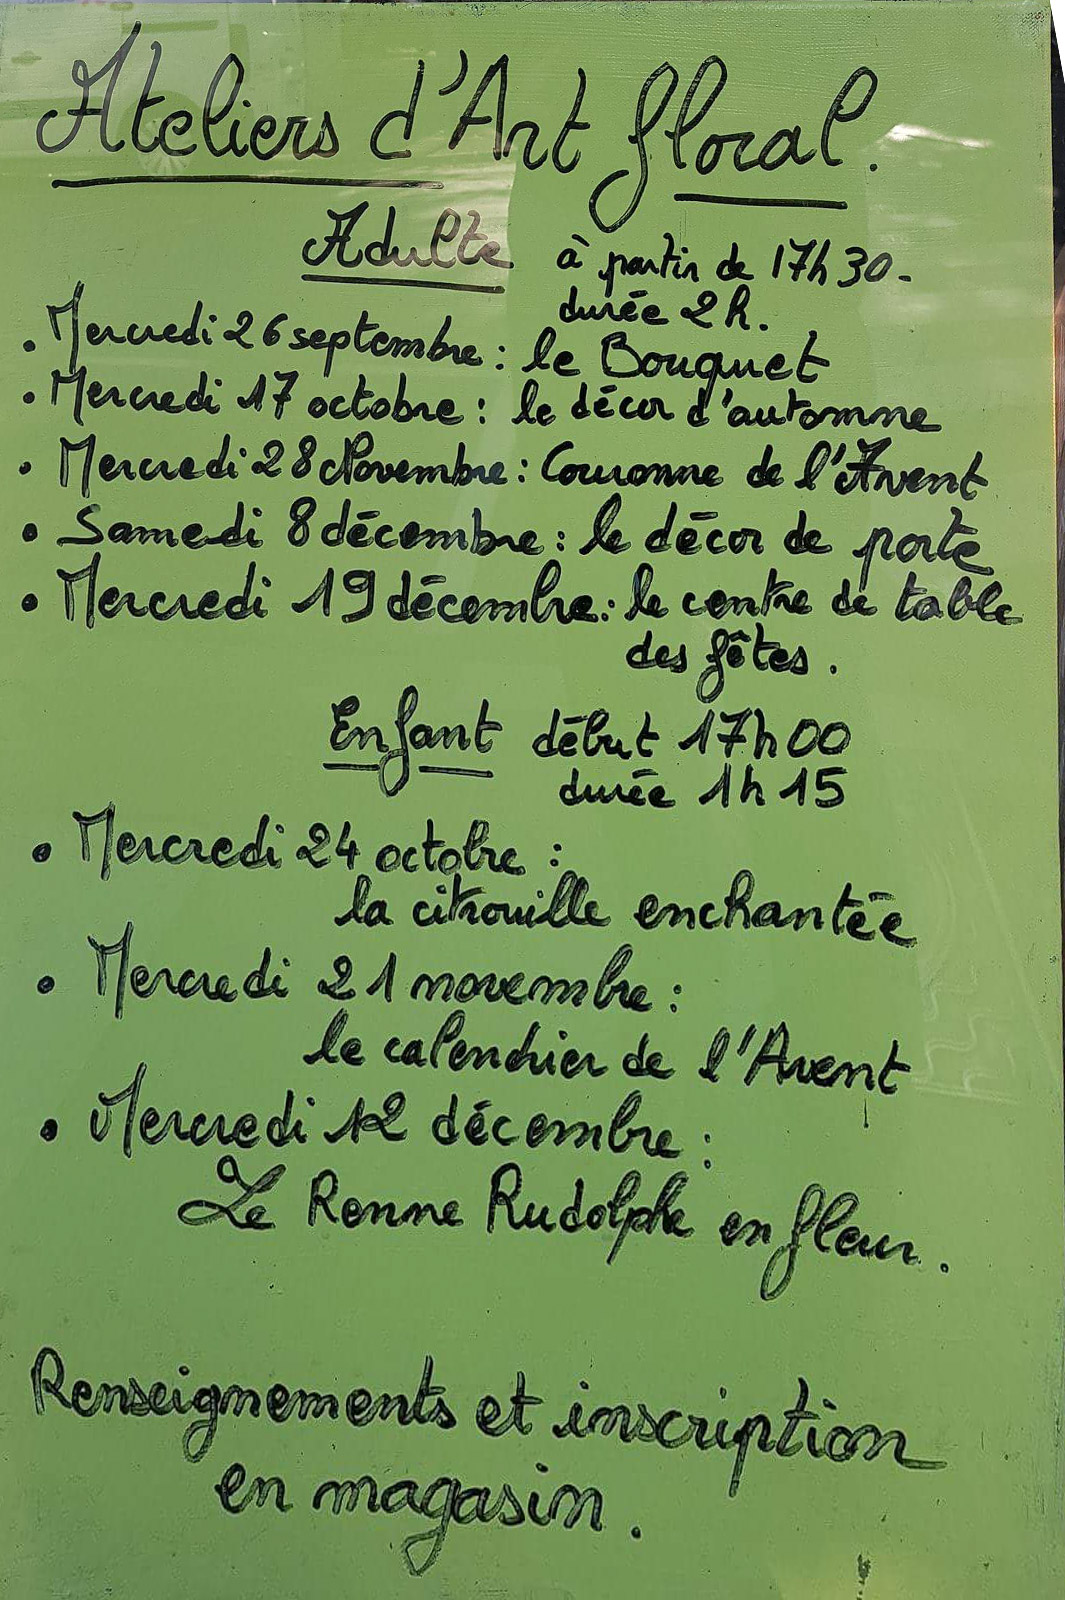 Ateliers d'Art floral.
Adulte à partir de 17h30.
durée 2h.
• Mercredi 26 septembre : le Bouquet
• Mercredi 17 octobre : le décor d'automne
• Mercredi 28 Novembre : Couronne de l'Avent
• Samedi 8 décembre : le décor de porte
• Mercredi 19 décembre : le centre de table
des fêtes.
Enfant début 17h00
durée 1h15
• Mercredi 24 octobre :
la citrouille enchantée
• Mercredi 21 novembre :
le calendrier de l'Avent
• Mercredi 12 décembre :
Le Renne Rudolphe en fleur.
Renseignements et inscription
en magasin.